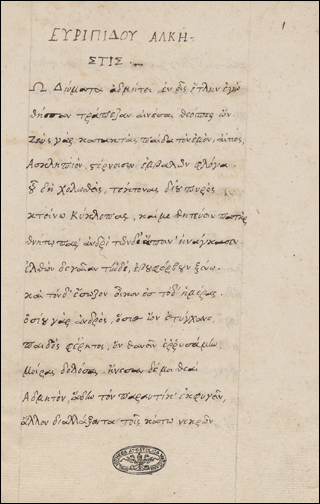 1
ΕΥΡΙΠΙΔΟΥ ΑΛΚΗ-
ΣΤΙΣ.
Ὦ Δώματα ἀδμήτει' ἐν οἷς ἔτλην ἐγὼ
θῆσσαν τράπεζαν αἰνέσαι θεός περ ὤν
Ζεὺς γὰρ κατακτὰς παῖδα τὸν ἐμὸν, αἴτιος,
Ἀσκληπιὸν, στέρνοισιν ἐμβαλὼν φλόγα
οὗ δὴ χολωθεὶς, τέκτονας δίου πυρὸς
κτείνω Κύκλωπας, καὶ με θητεύειν πατὴρ
θνητῷ παρ' ἀνδρὶ τῶνδ' ἄποιν' ἠνάγκασεν
ἐλθὼν δὲ γαῖαν τήνδ', ἐβουφόρβουν ξένῳ.
καὶ τόνδ' ἔσωζον οἶκον ἐς τόδ' ἡμέρας.
ὁσίου γὰρ ἀνδρὸς, ὅσιος ὢν ἐτύγχανον
παιδὸς φέρητος, ὃν θανεῖν ἐρρυσάμην,
μοίρας δολώσας. ᾔνεσαν δέ μοι θεαὶ
Ἄδμητον, ᾅδην τὸν παραυτίκ' ἐκφυγεῖν,
ἄλλον διαλλάξαντα τοῖς κάτω νεκρόν